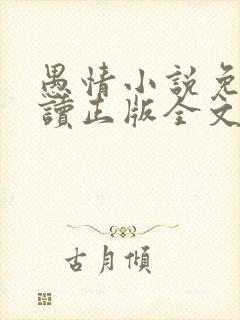 愚情小說免
讀正版全文
古月傾